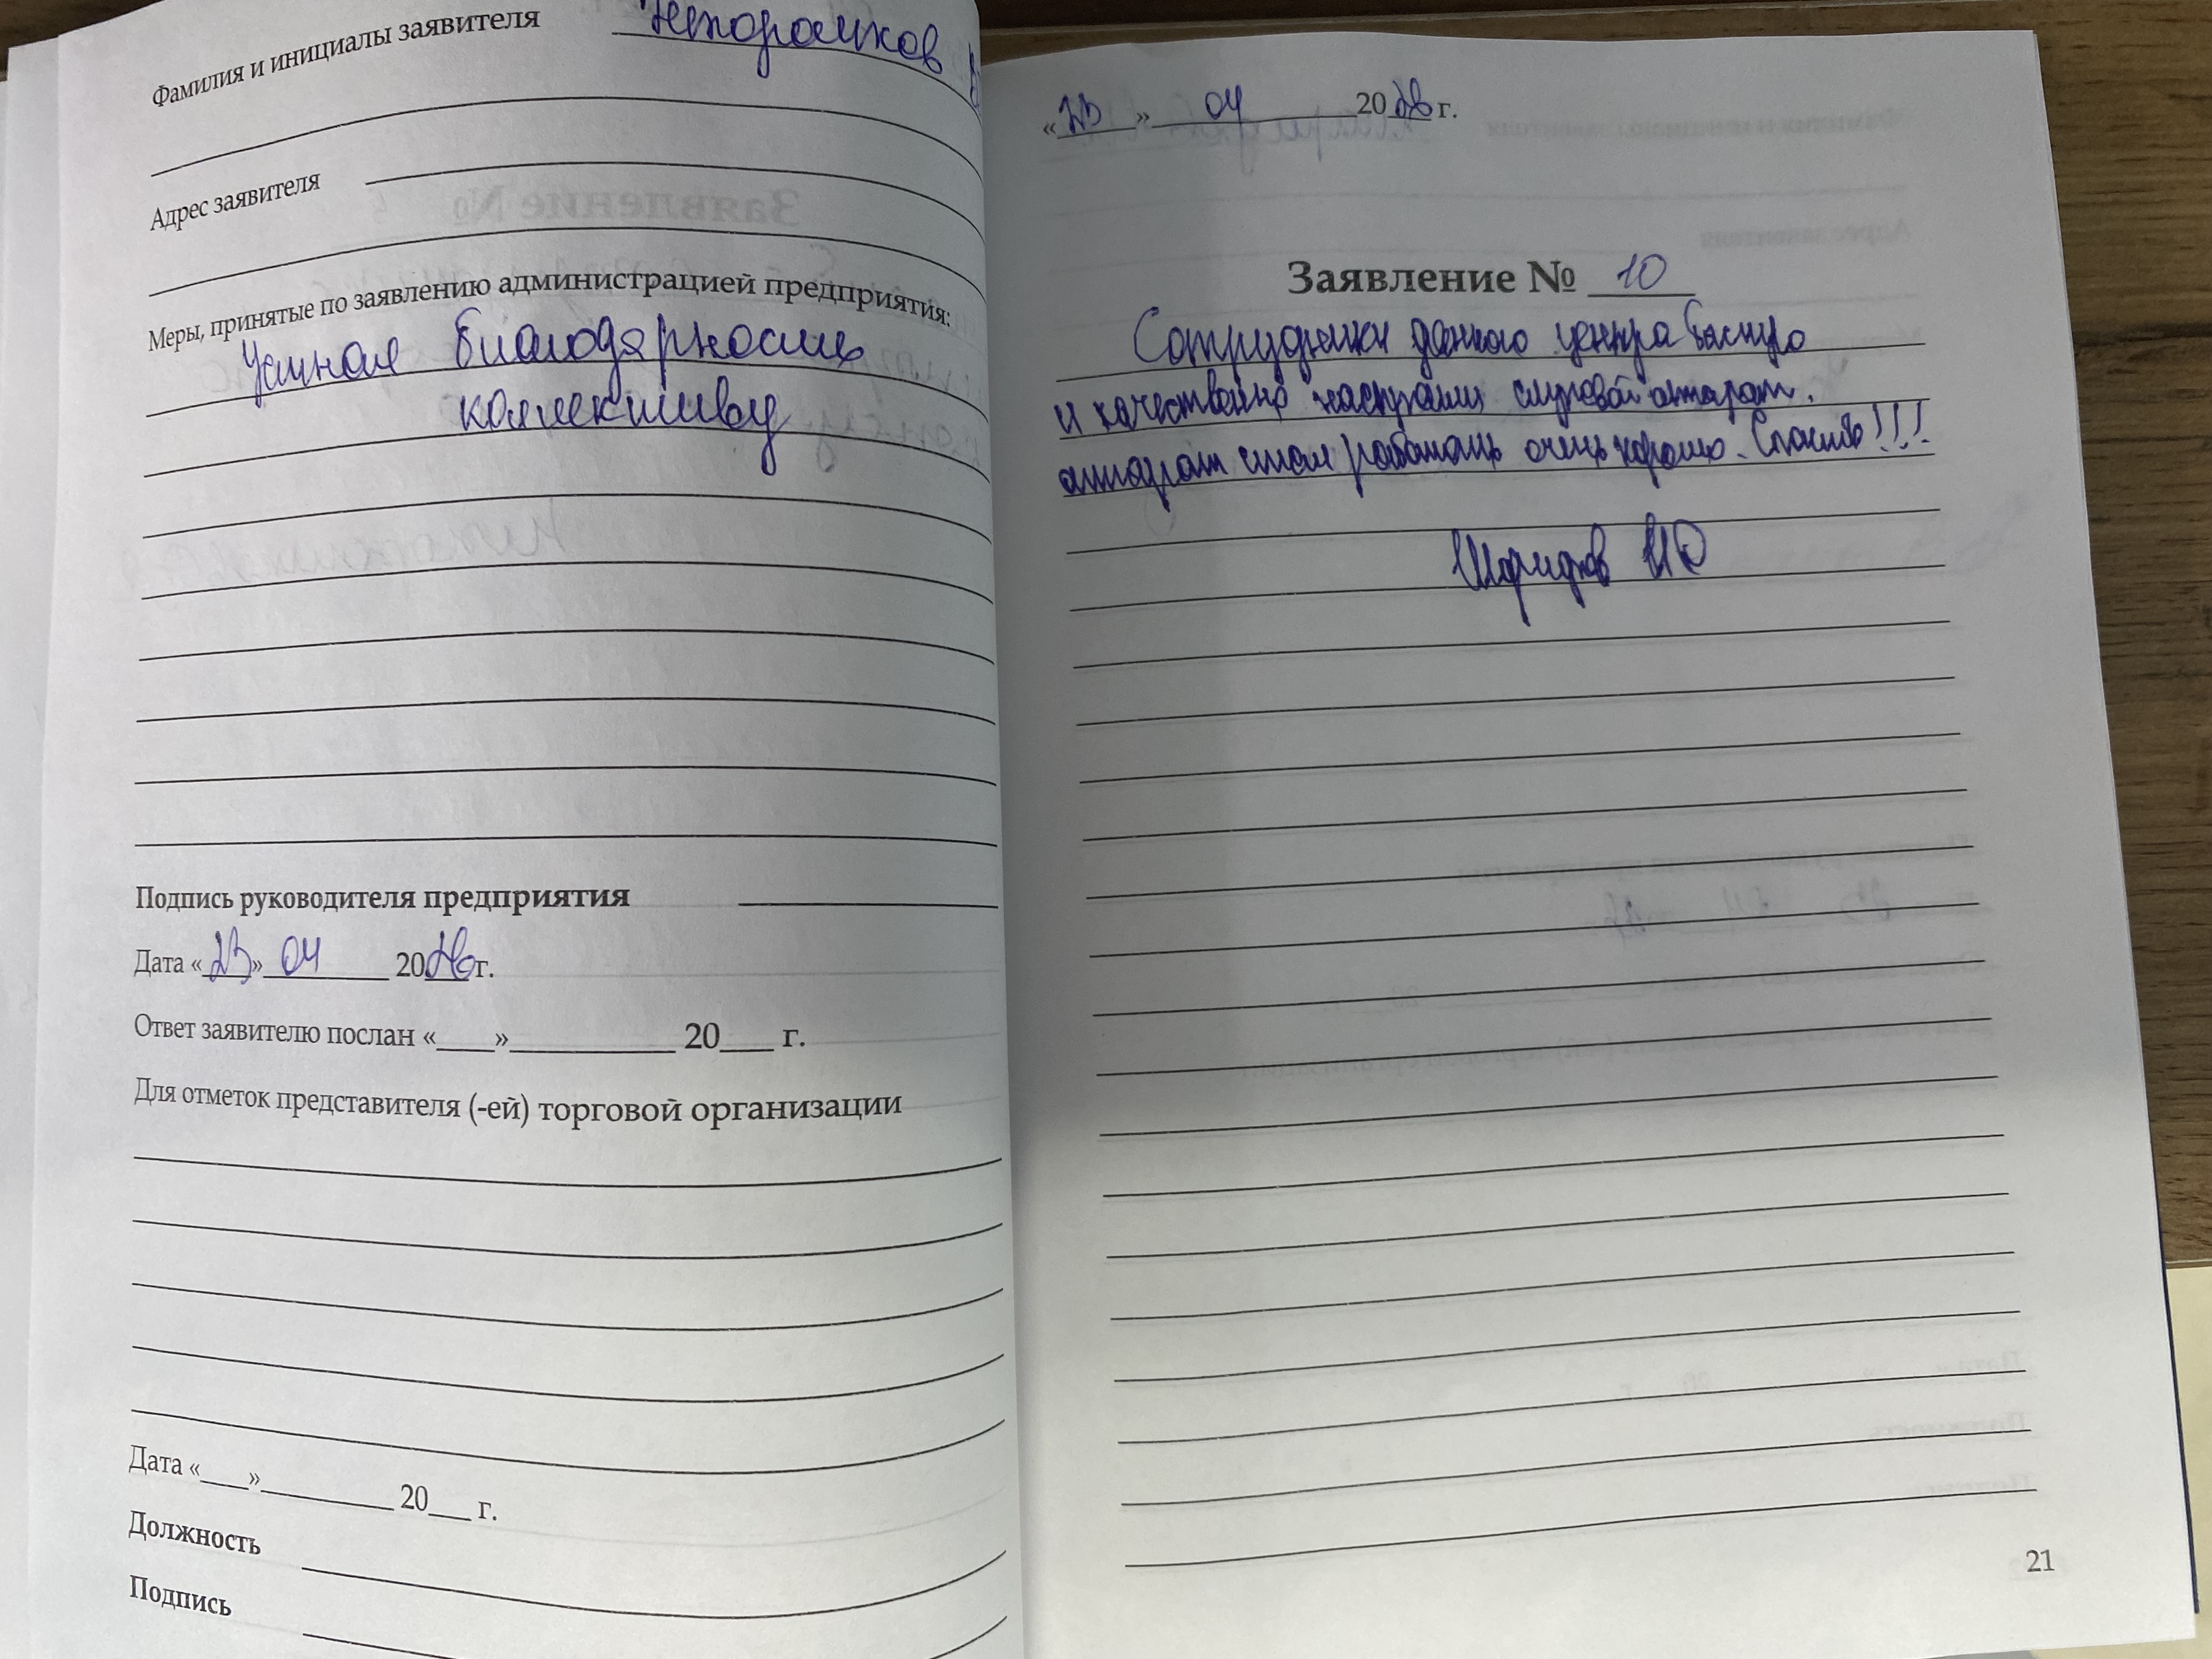 Фамилия и инициалы заявителя
Адрес заявителя
Меры, принятые по заявлению администрацией предприятия:
Устная благодарность
коллективу
Подпись руководителя предприятия
Дата «23» 04 2026г.
Ответ заявителю послан «____»____________ 20____ г.
Для отметок представителя (-ей) торговой организации
Дата «____»__________ 20___ г.
Должность
Подпись
«23» 04 2026 г.
Заявление № 10
Сотрудники данного центра быстро
и качественно настроили слуховой аппарат.
аппарат стал работать очень хорошо. Спасибо!!!
21